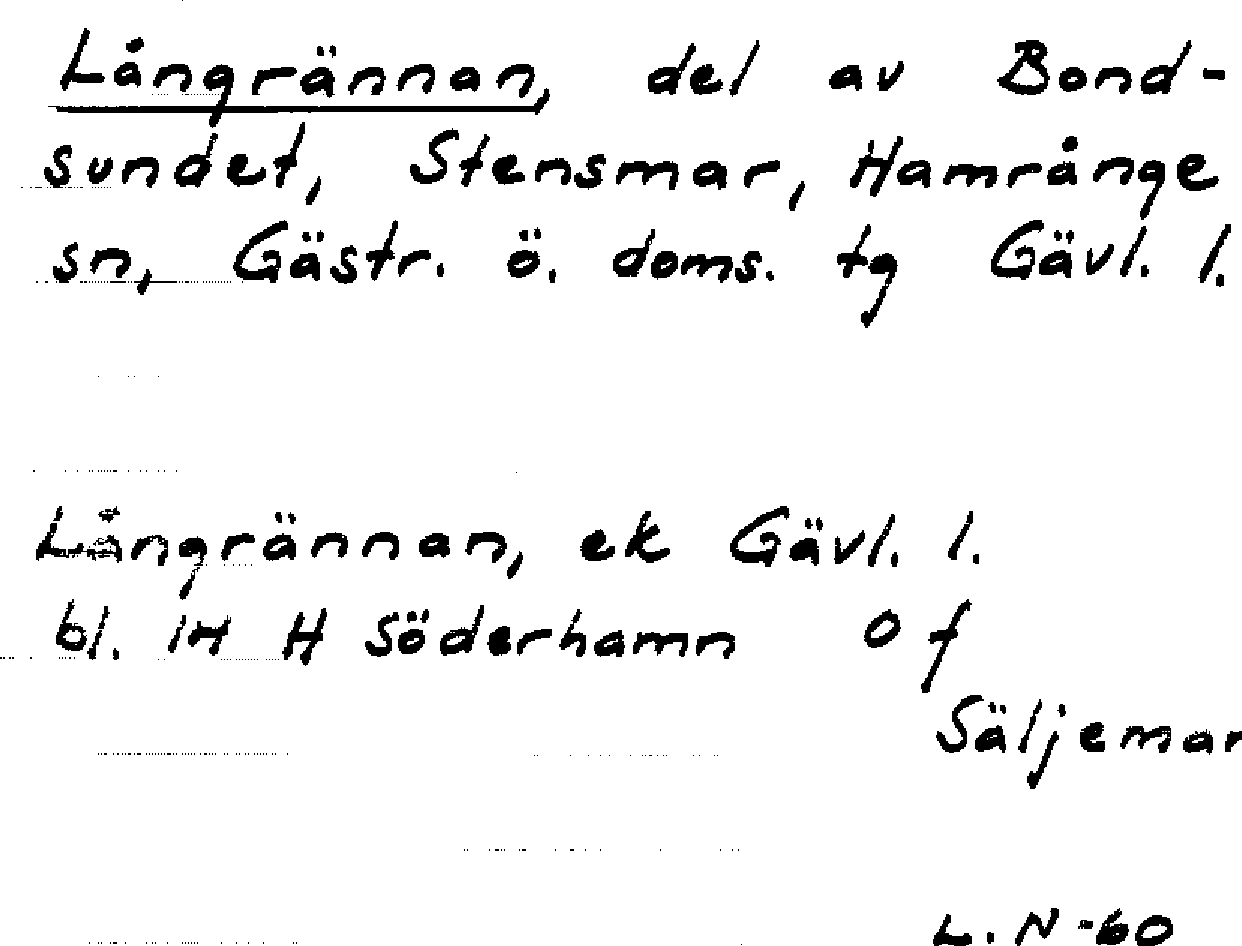 Långrännan, del av Bond-
sundet, Stensmar, Hamrånge
sn, Gästr. ö. doms. tg Gävl. l.
Långrännan, ek Gävl. l.
bl. 14 H Söderhamn O f
Säljemar
L. N -60